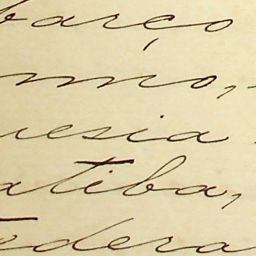 barço
nno,
uesia
atiba,
edera